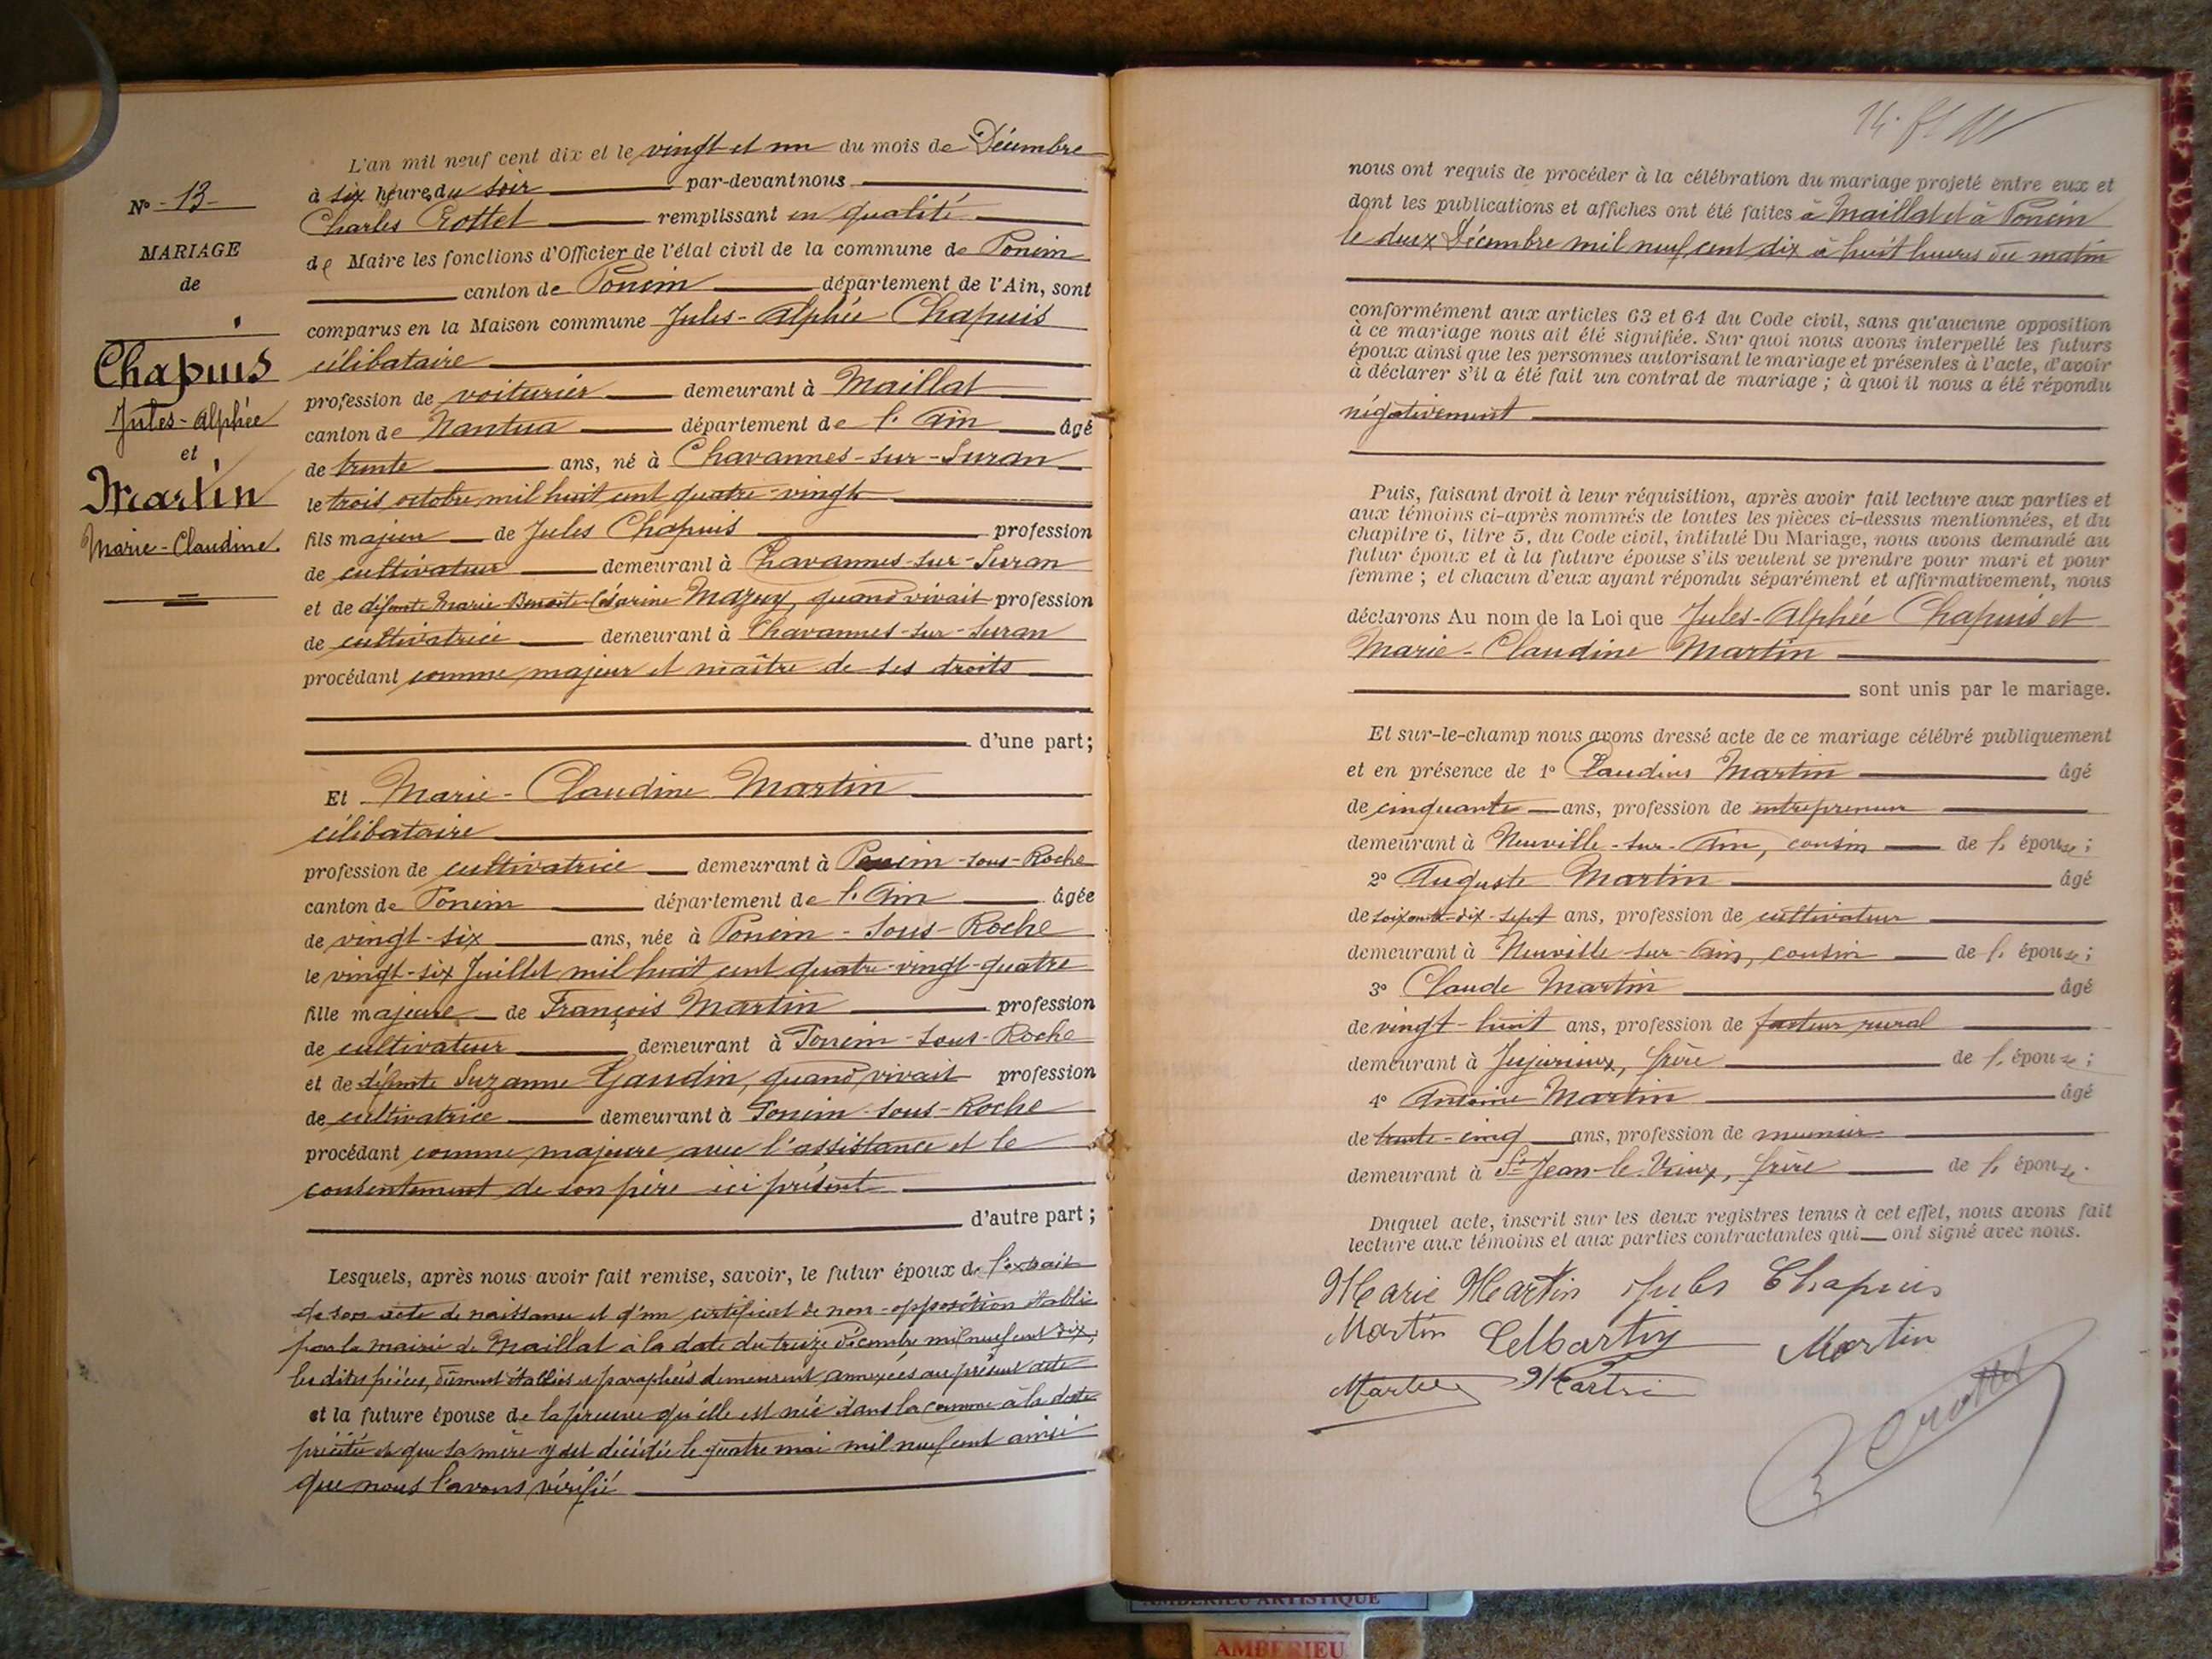 N° 13
MARIAGE
de
Chapuis
Jules-Alphée
et
Martin
Marie-Claudine.
L'an mil neuf cent dix et le vingt et un du mois de Décembre
à six heures du soir par-devant nous
Charles Crottet remplissant en qualité
de Maire les fonctions d'Officier de l'état civil de la commune de Poncin
canton de Poncin département de l'Ain, sont
comparus en la Maison commune Jules-Alphée Chapuis
célibataire
profession de voiturier demeurant à Maillat
canton de Nantua département de l'Ain âgé
de trente ans, né à Chavannes-sur-Suran
le trois octobre mil huit cent quatre-vingt
fils majeur de Jules Chapuis profession
de cultivateur demeurant à Chavannes-sur-Suran
et de défunte Marie Benoite-Césarine Mazuy, quand vivait profession
de cultivatrice demeurant à Chavannes-sur-Suran
procédant comme majeur et maître de ses droits
d'une part;
Et Marie-Claudine Martin
célibataire
profession de cultivatrice demeurant à Poncin-sous-Roche
canton de Poncin département de l'Ain âgée
de vingt-six ans, née à Poncin-Sous-Roche
le vingt-six Juillet mil huit cent quatre-vingt-quatre
fille majeure de François Martin profession
de cultivateur demeurant à Poncin-Sous-Roche
et de défunte Suzanne Gaudin, quand vivait profession
de cultivatrice demeurant à Poncin-sous-Roche
procédant comme majeure avec l'assistance et le
consentement de son père ici présent
d'autre part;
Lesquels, après nous avoir fait remise, savoir, le futur époux de l'extrait
de son acte de naissance et d'un certificat de non-opposition établi
par la mairie de Maillat à la date du treize décembre mil neuf cent dix,
les dites pièces, dûment établies et paraphées demeurent annexées au présent acte
et la future épouse de la preuve qu'elle est née dans la commune à la date
précitée et que sa mère y est décédée le quatre mai mil neuf cent ainsi
que nous l'avons vérifié
nous ont requis de procéder à la célébration du mariage projeté entre eux et
dont les publications et affiches ont été faites à Maillat et à Poncin
le deux Décembre mil neuf cent dix à huit heures du matin
conformément aux articles 63 et 64 du Code civil, sans qu'aucune opposition
à ce mariage nous ait été signifiée. Sur quoi nous avons interpellé les futurs
époux ainsi que les personnes autorisant le mariage et présentes à l'acte, d'avoir
à déclarer s'il a été fait un contrat de mariage; à quoi il nous a été répondu
négativement
Puis, faisant droit à leur réquisition, après avoir fait lecture aux parties et
aux témoins ci-après nommés de toutes les pièces ci-dessus mentionnées, et du
chapitre 6, titre 5, du Code civil, intitulé Du Mariage, nous avons demandé au
futur époux et à la future épouse s'ils veulent se prendre pour mari et pour
femme; et chacun d'eux ayant répondu séparément et affirmativement, nous
déclarons Au nom de la Loi que Jules-Alphée Chapuis et
Marie-Claudine Martin
sont unis par le mariage.
Et sur-le-champ nous avons dressé acte de ce mariage célébré publiquement
et en présence de 1° Claudius Martin âgé
de cinquante ans, profession de entrepreneur
demeurant à Neuville-sur-Ain, cousin de l'épouse;
2° Auguste Martin âgé
de soixante-dix-sept ans, profession de cultivateur
demeurant à Neuville-sur-Ain, cousin de l'épouse;
3° Claude Martin âgé
de vingt-huit ans, profession de facteur rural
demeurant à Jujurieux, frère de l'épouse;
4° Antoine Martin âgé
de trente-cinq ans, profession de meunier
demeurant à St Jean-le-Vieux, frère de l'épouse.
Duquel acte, inscrit sur les deux registres tenus à cet effet, nous avons fait
lecture aux témoins et aux parties contractantes qui ont signé avec nous.
Marie Martin Jules Chapuis
Martin Martin
Martin Martin
Crottet
AMBERIEU ARTISTIQUE
AMBERIEU